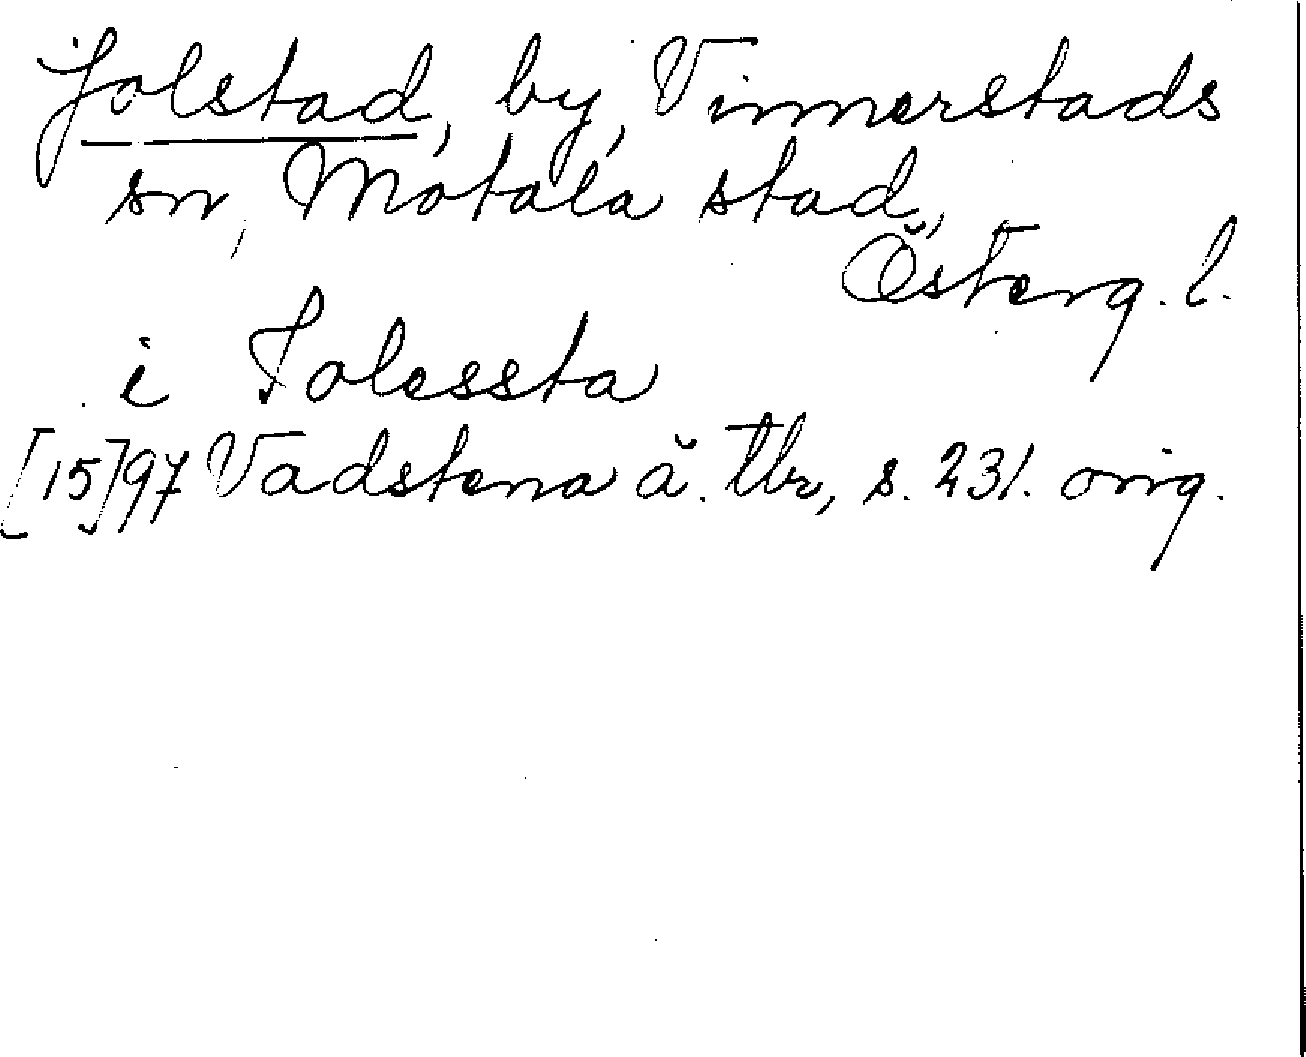 Jolstad, by, Vinnerstads
sn, Motala stad,
Österg. l.
i Iolessta
[15]97 Vadstena ä. tb., s. 231. orig.